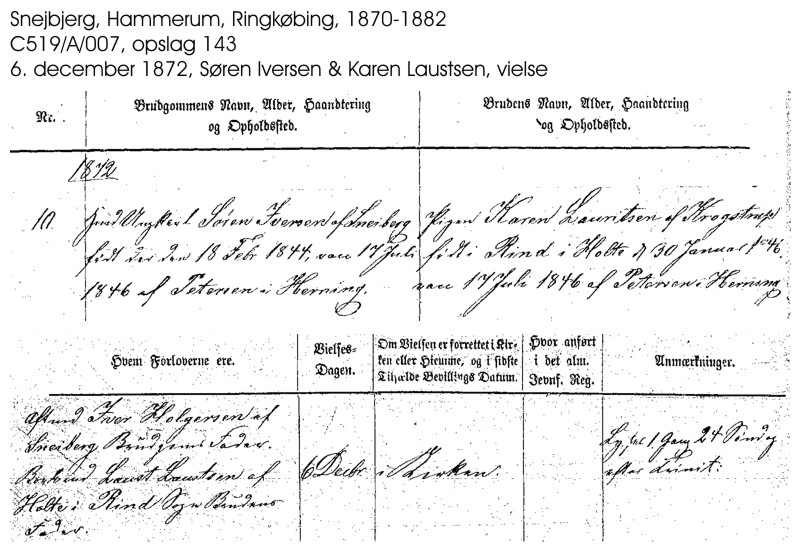 Snejbjerg, Hammerum, Ringkøbing, 1870-1882
C519/A/007, opslag 143
6. december 1872, Søren Iversen & Karen Laustsen, vielse
Nr.
Brudgommens Navn, Alder, Haandtering
og Opholdssted.
Brudens Navn, Alder, Haandtering
og Opholdssted.
1872
10.
Søren Iversen af Sneiberg
født der den 18 Febr 1844, vacc 17 Juli
1846 af Petersen i Herning.
Pigen Karen Lauritsen af Krogstrup
født i Rind i Holte d 30 Januar 1846.
vacc 17 Juli 1846 af Petersen i Herning
Hvem Forloverne ere.
Vielses-
Dagen.
Om Vielsen er forrettet i Kir-
ken eller Hiemme, og i sidste
Tilfælde Bevillings Datum.
Hvor anført
i det alm.
Jevnf. Reg.
Anmærkninger.
Iver Holgersen af
Sneiberg Brudgoms Fader.
Laust Laustsen af
Holte i Rind Sogn Brudens
Fader.
6 Decbr
i Kirken.
1 Gang 24 Søndag
efter Trinit: